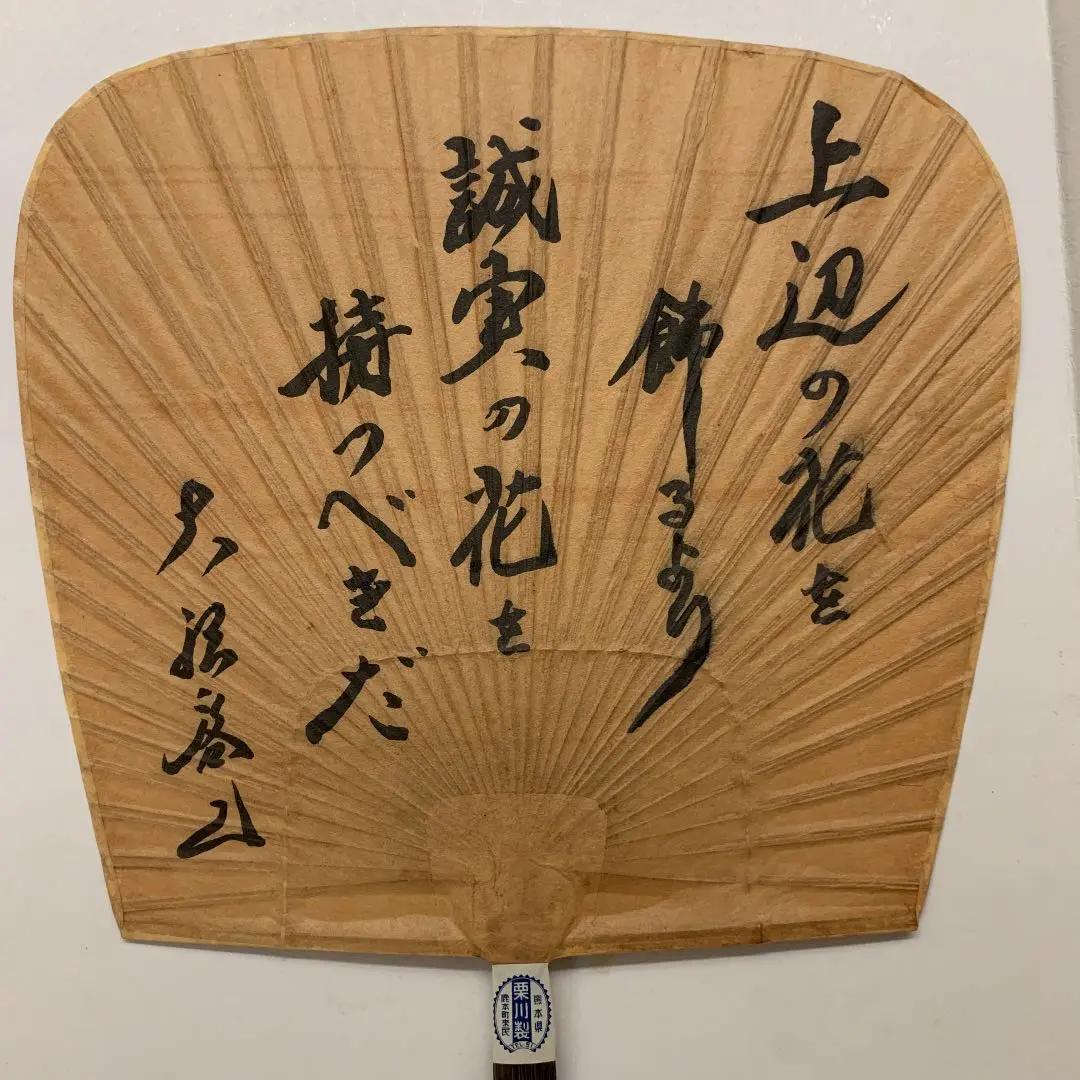 上辺の花を
飾るより
誠実の花を
持つべきだ
熊本県
栗川製
鹿本町来民
TEL 51